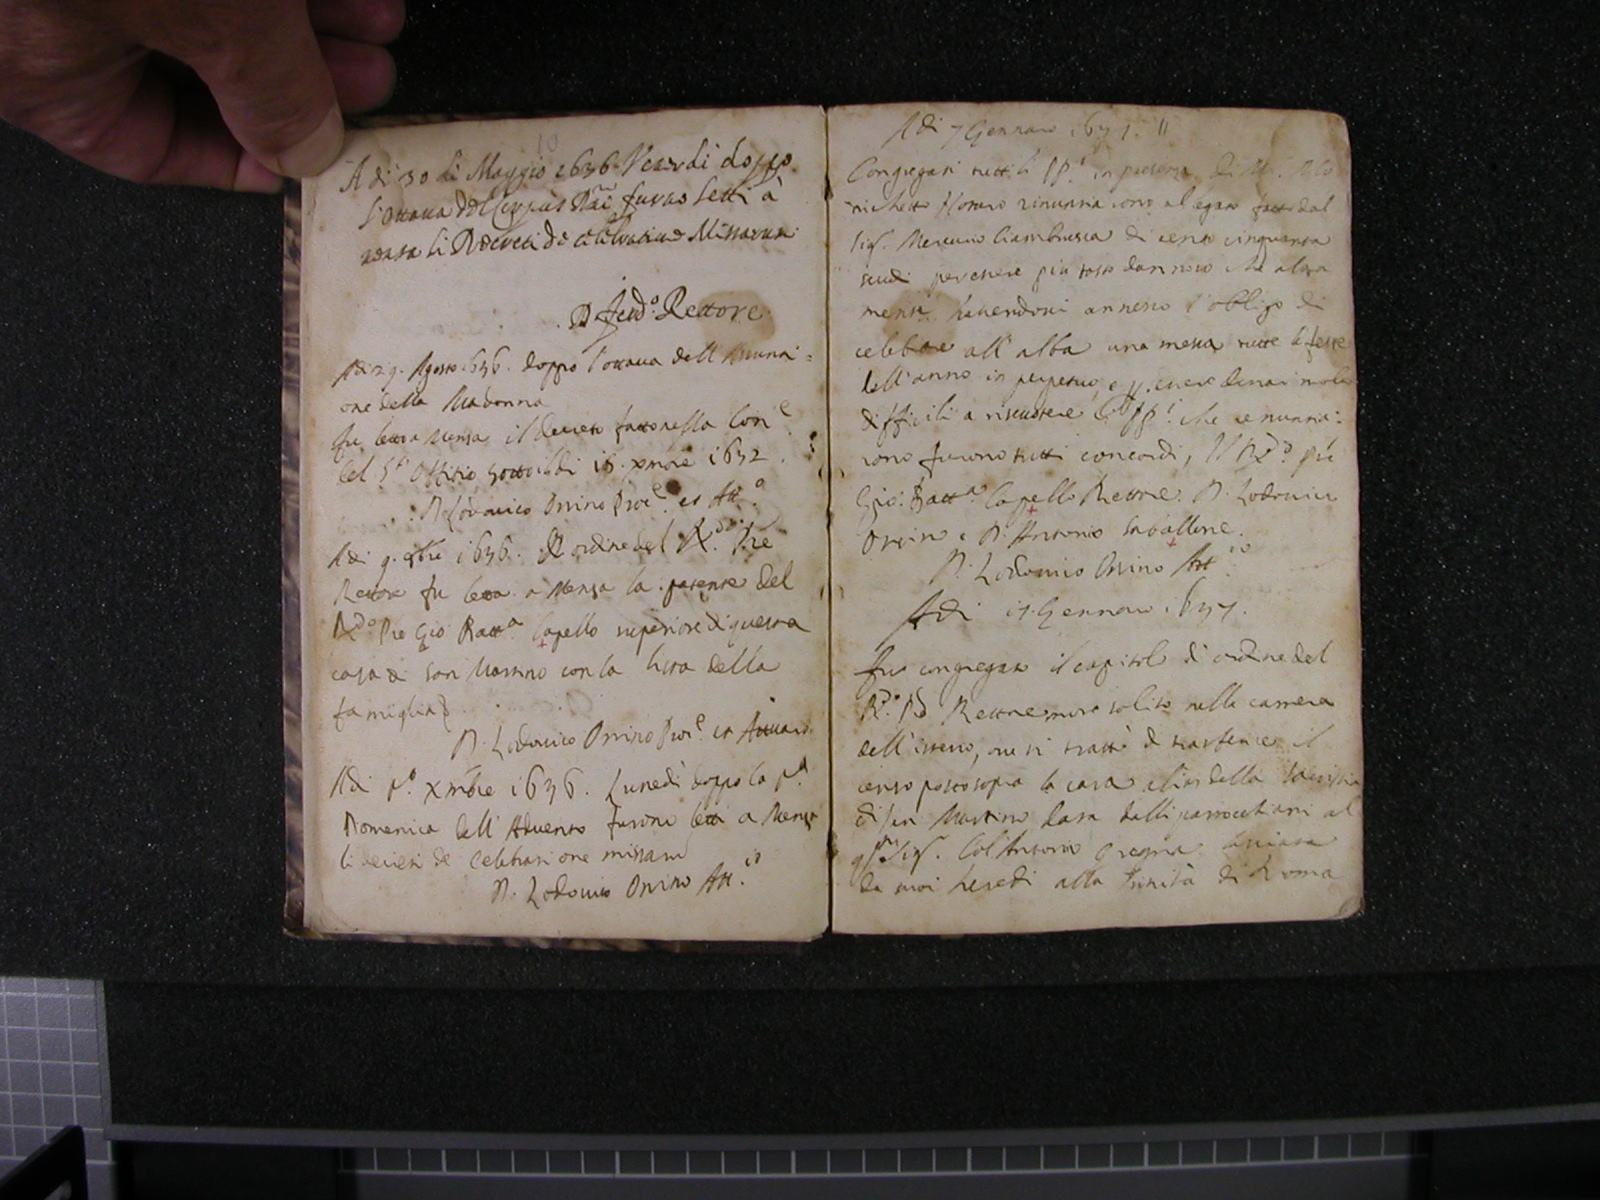 10
A di 30 di Maggio 1636 Venerdi doppo
l'ottava del Corpus furno letti à
mensa li Decreti de celebratione Missarum
Rettore
Adi 29. Agosto 1636. doppo l'ottaua dell'Assunti=
one della Madonna
fu letto a Mensa il decreto fatto nella
del Offitio sotto il di 18. xmbre 1632
D. Lodovico Orsino et Att.o
Adi 9. 1636. D'ordine del R.do Pre
Rettore fu letta a Mensa la patente del
R.do Pre Gio Batt.a Capello superiore di questa
casa di san Martino con la lista della
famiglia
D. Lodovico Orsino et Attuario
Adi p.o xmbre 1636. Lunedì doppo la p.a
Domenica dell'Advento furono letti a Mensa
li decreti de Celebratione missarum
D. Lodovico Orsino Att.io
Adi 7 Gennaro 1637. 11
Congregati tutti li PP.i in presenza di
rinuntiarono al legato fatto dal
Sig. Mercurio Ciambrusca di cento cinquanta
scudi per essere più tosto dannoso che altra
mente havendoni annesso l'obligo di
celebrare all'alba una messa tutte le feste
dell'anno in perpetuo, e denari molto
difficili a riscuotere, PP.i che renuntia:
rono furono tutti concordi, Il R.do pre
Gio: Batt.a Capello Rettore D. Lodovico
Orsino e D. Antonio
D. Lodovico Orsino Att.io
Adi Gennaro 1637.
fu congregato il capitolo di ordine del
R.do Rettore more solito nella camera
dell'istesso, ove si trattò di il
censo posto sopra la casa della
di san Martino data dalli parrocchiani al
Sig. Col'Antonio lasciata
da suoi heredi alla Trinità di Roma